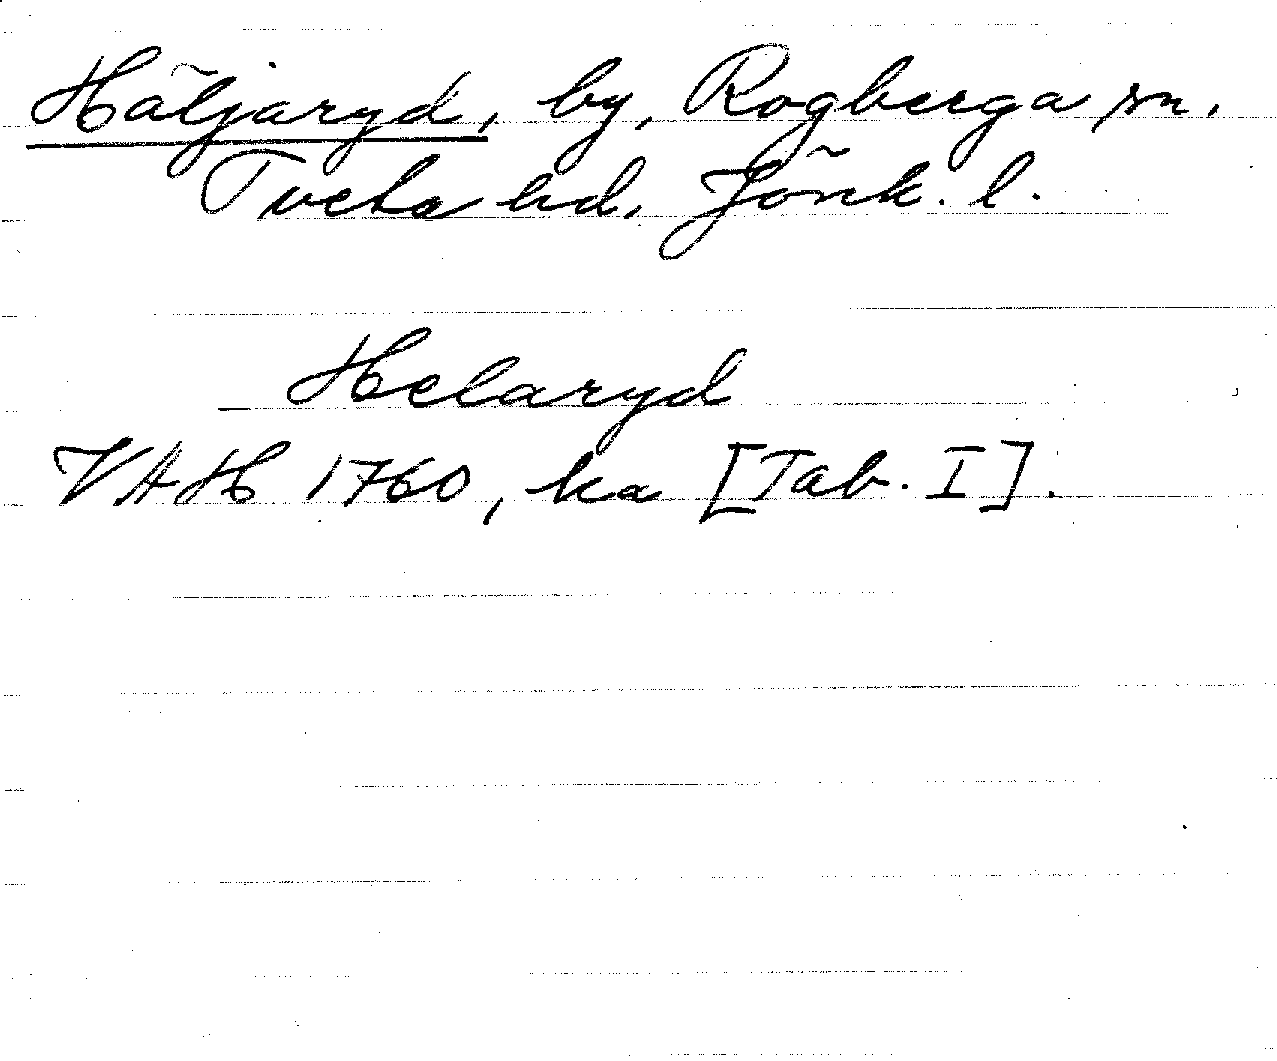 Häljaryd, by, Rogberga sn.
Tveta hd, Jönk. l.
Helaryd
VAH 1760, ka [Tab. I].